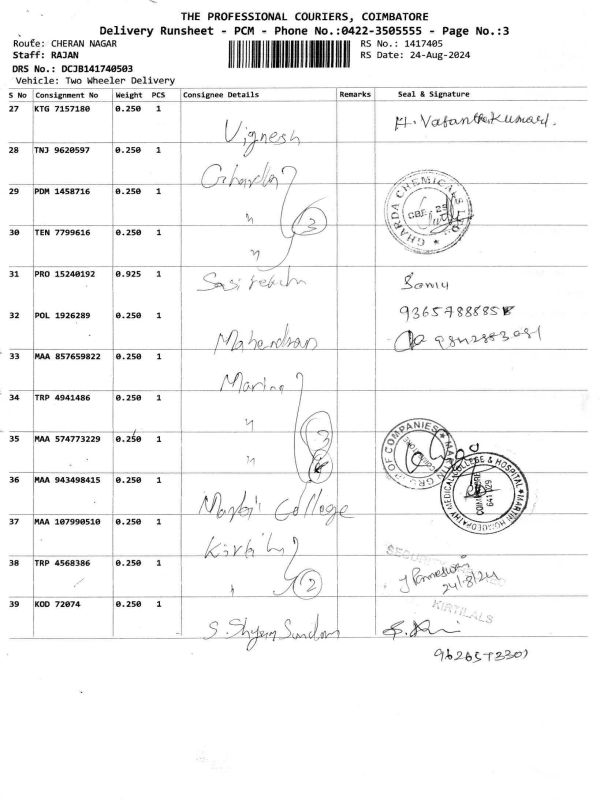 THE PROFESSIONAL COURIERS, COIMBATORE
Delivery Runsheet - PCM - Phone No.:0422-3505555 - Page No.:3
Route: CHERAN NAGAR RS No.: 1417405
Staff: RAJAN RS Date: 24-Aug-2024
DRS No.: DCJB141740503
Vehicle: Two Wheeler Delivery
S No Consignment No Weight PCS Consignee Details Remarks Seal & Signature
27 KTG 7157180 0.250 1 Vignesh
28 TNJ 9620597 0.250 1 Gharda
29 PDM 1458716 0.250 1 " 3 GHARDA CHEMICALS LTD. CBE
30 TEN 7799616 0.250 1 "
31 PRO 15240192 0.925 1
32 POL 1926289 0.250 1 Mahendran
33 MAA 857659822 0.250 1
34 TRP 4941486 0.250 1 "
35 MAA 574773229 0.250 1 " MARTIN GROUP OF COMPANIES COIMBATORE
36 MAA 943498415 0.250 1 College MARTIN HOMOEOPATHY MEDICAL COLLEGE & HOSPITAL COIMBATORE 641 029
37 MAA 107990510 0.250 1
38 TRP 4568386 0.250 1 " 2 SECURITY 24/8/24
39 KOD 72074 0.250 1 S. Shyam Sundar KIRTILALS